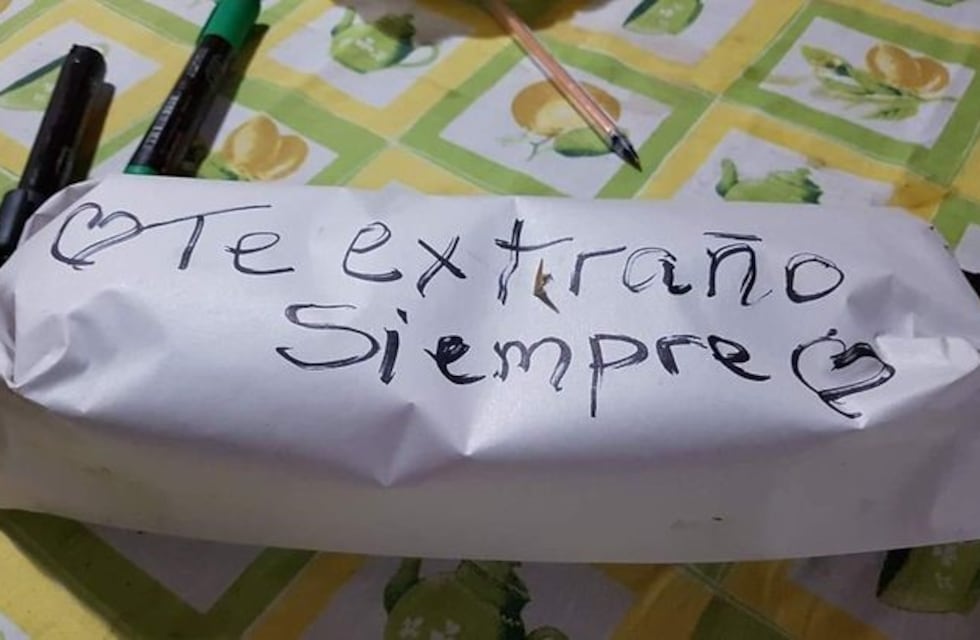 ♡Te extraño
Siempre♡